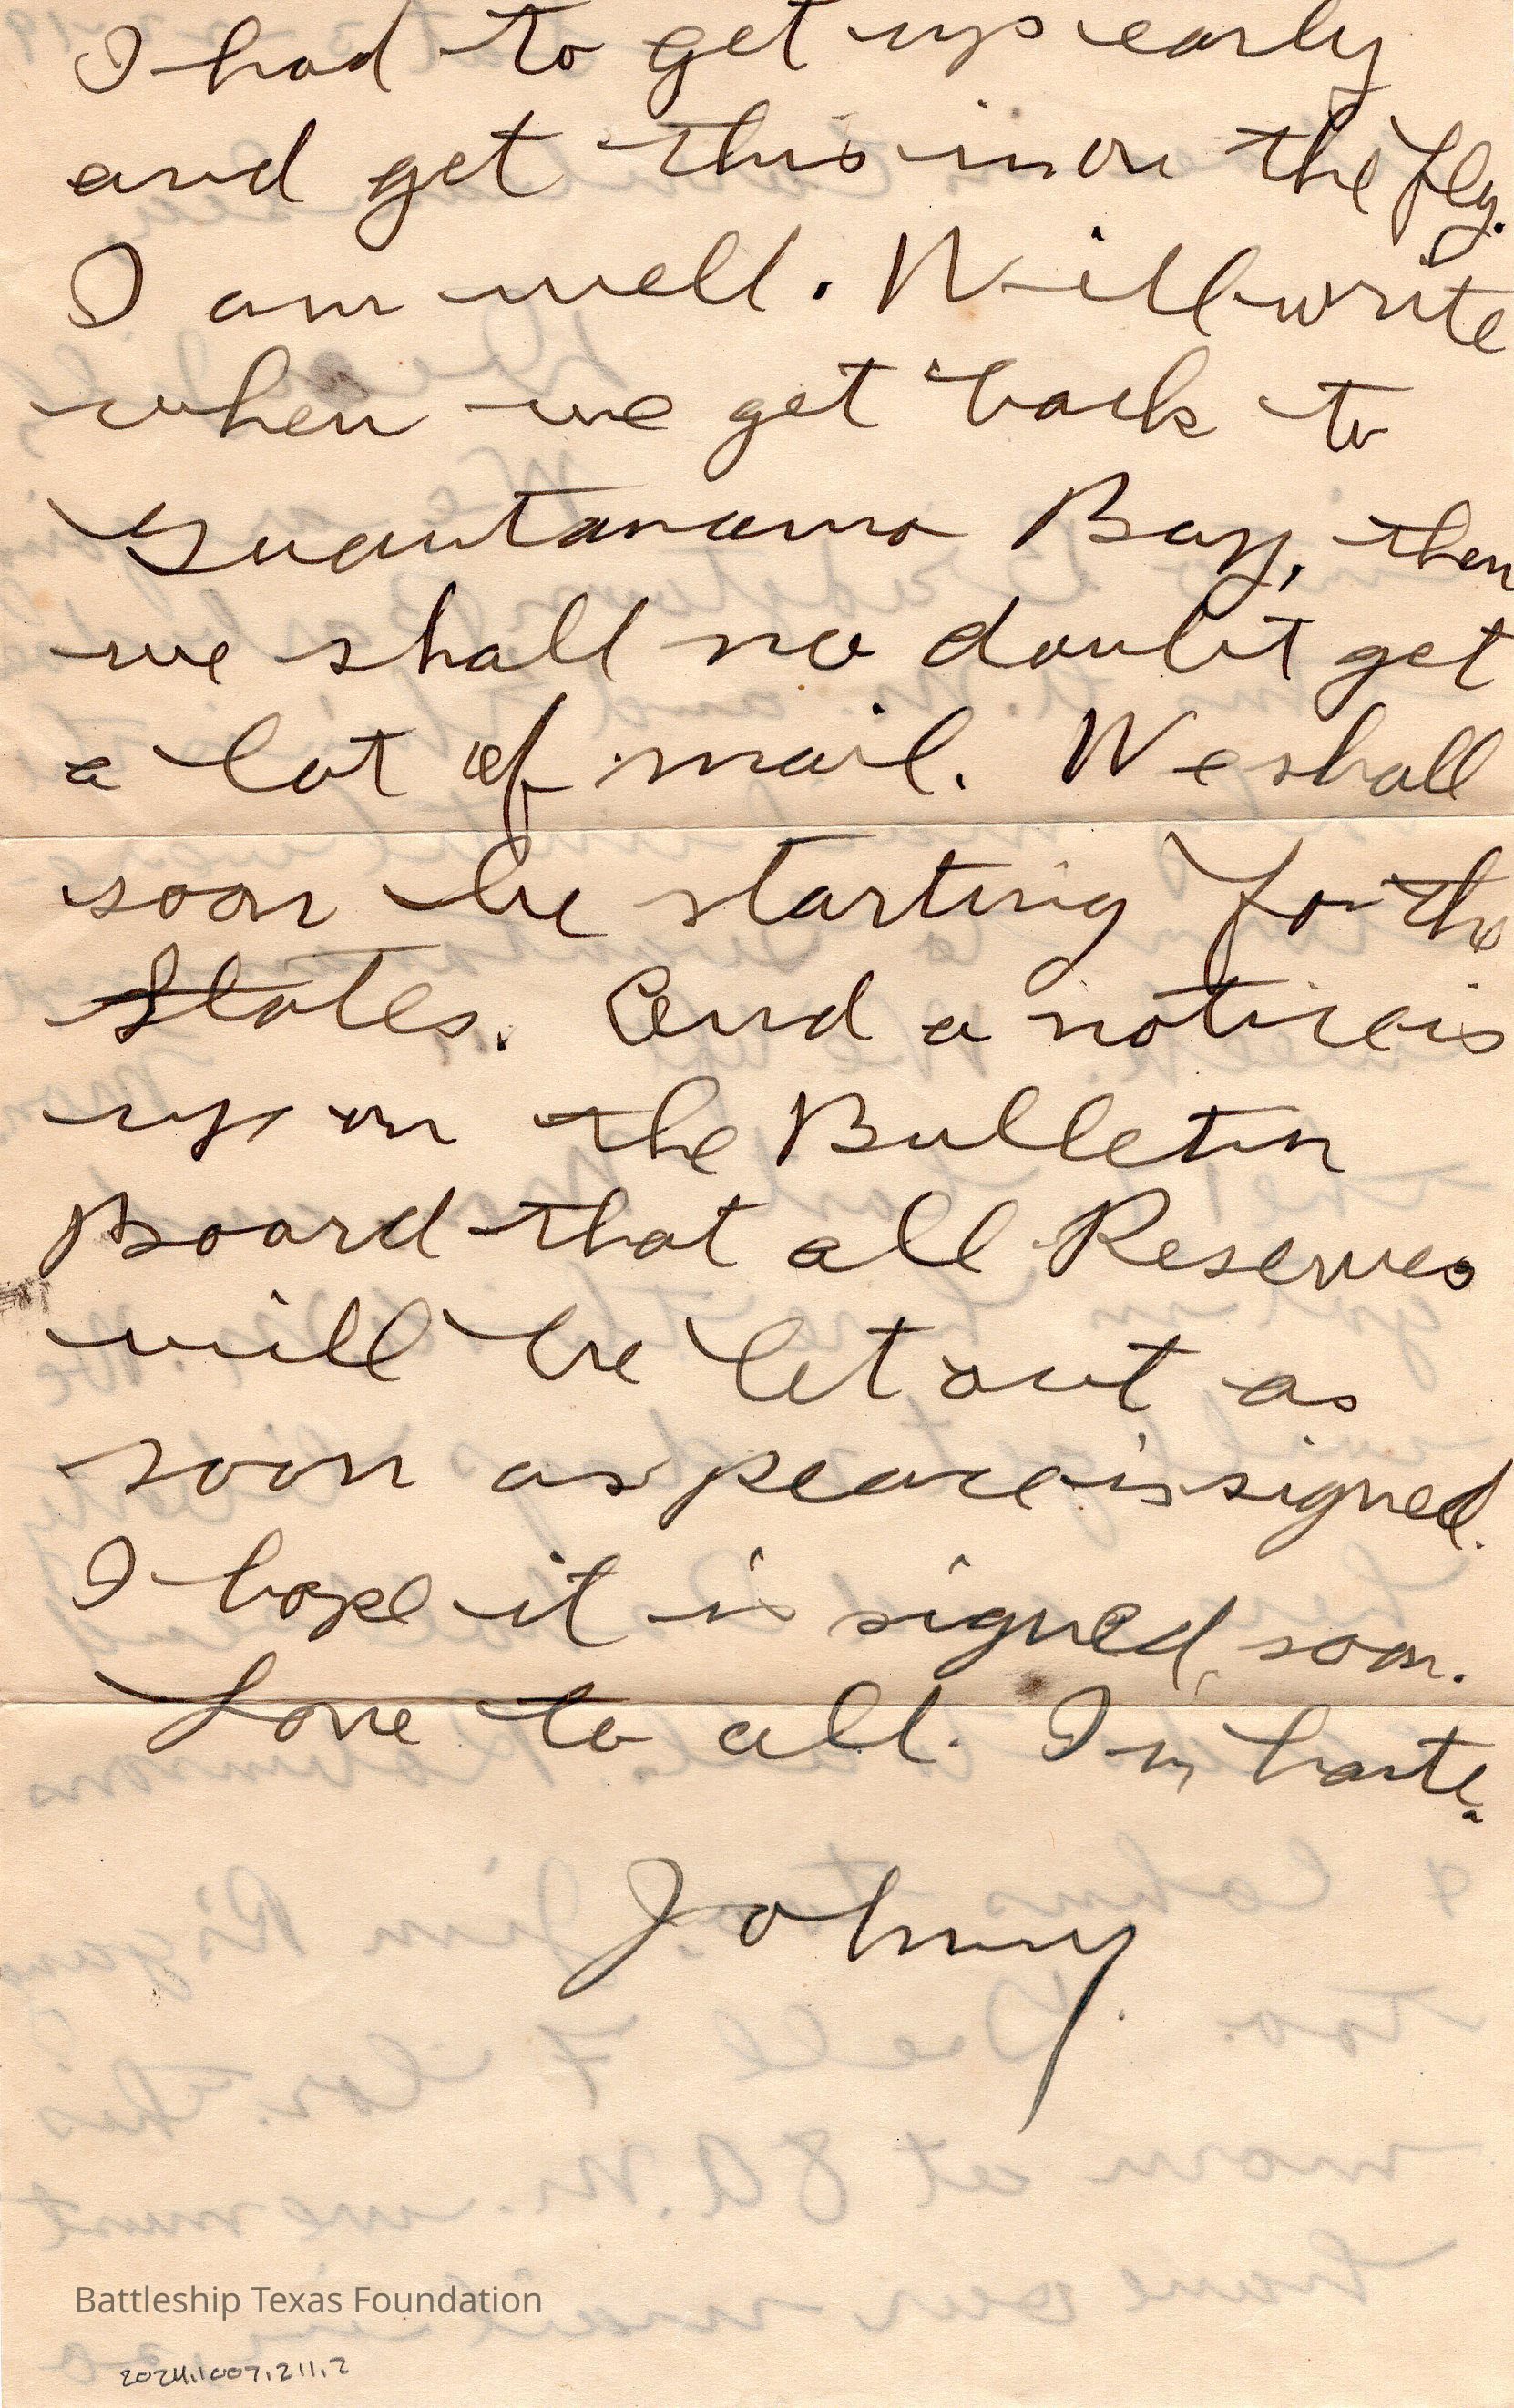 I had to get up early
and get this in on the fly.
I am well. Will write
when we get back to
Guantanamo Bay, then
we shall no doubt get
a lot of mail. We shall
soon be starting for the
States. And a notice is
up on the Bulletin
Board that all Reserves
will be let out as
soon as peace is signed.
I hope it is signed soon.
Love to all. In haste.
Johnny.
Battleship Texas Foundation
2024.1007.211.2